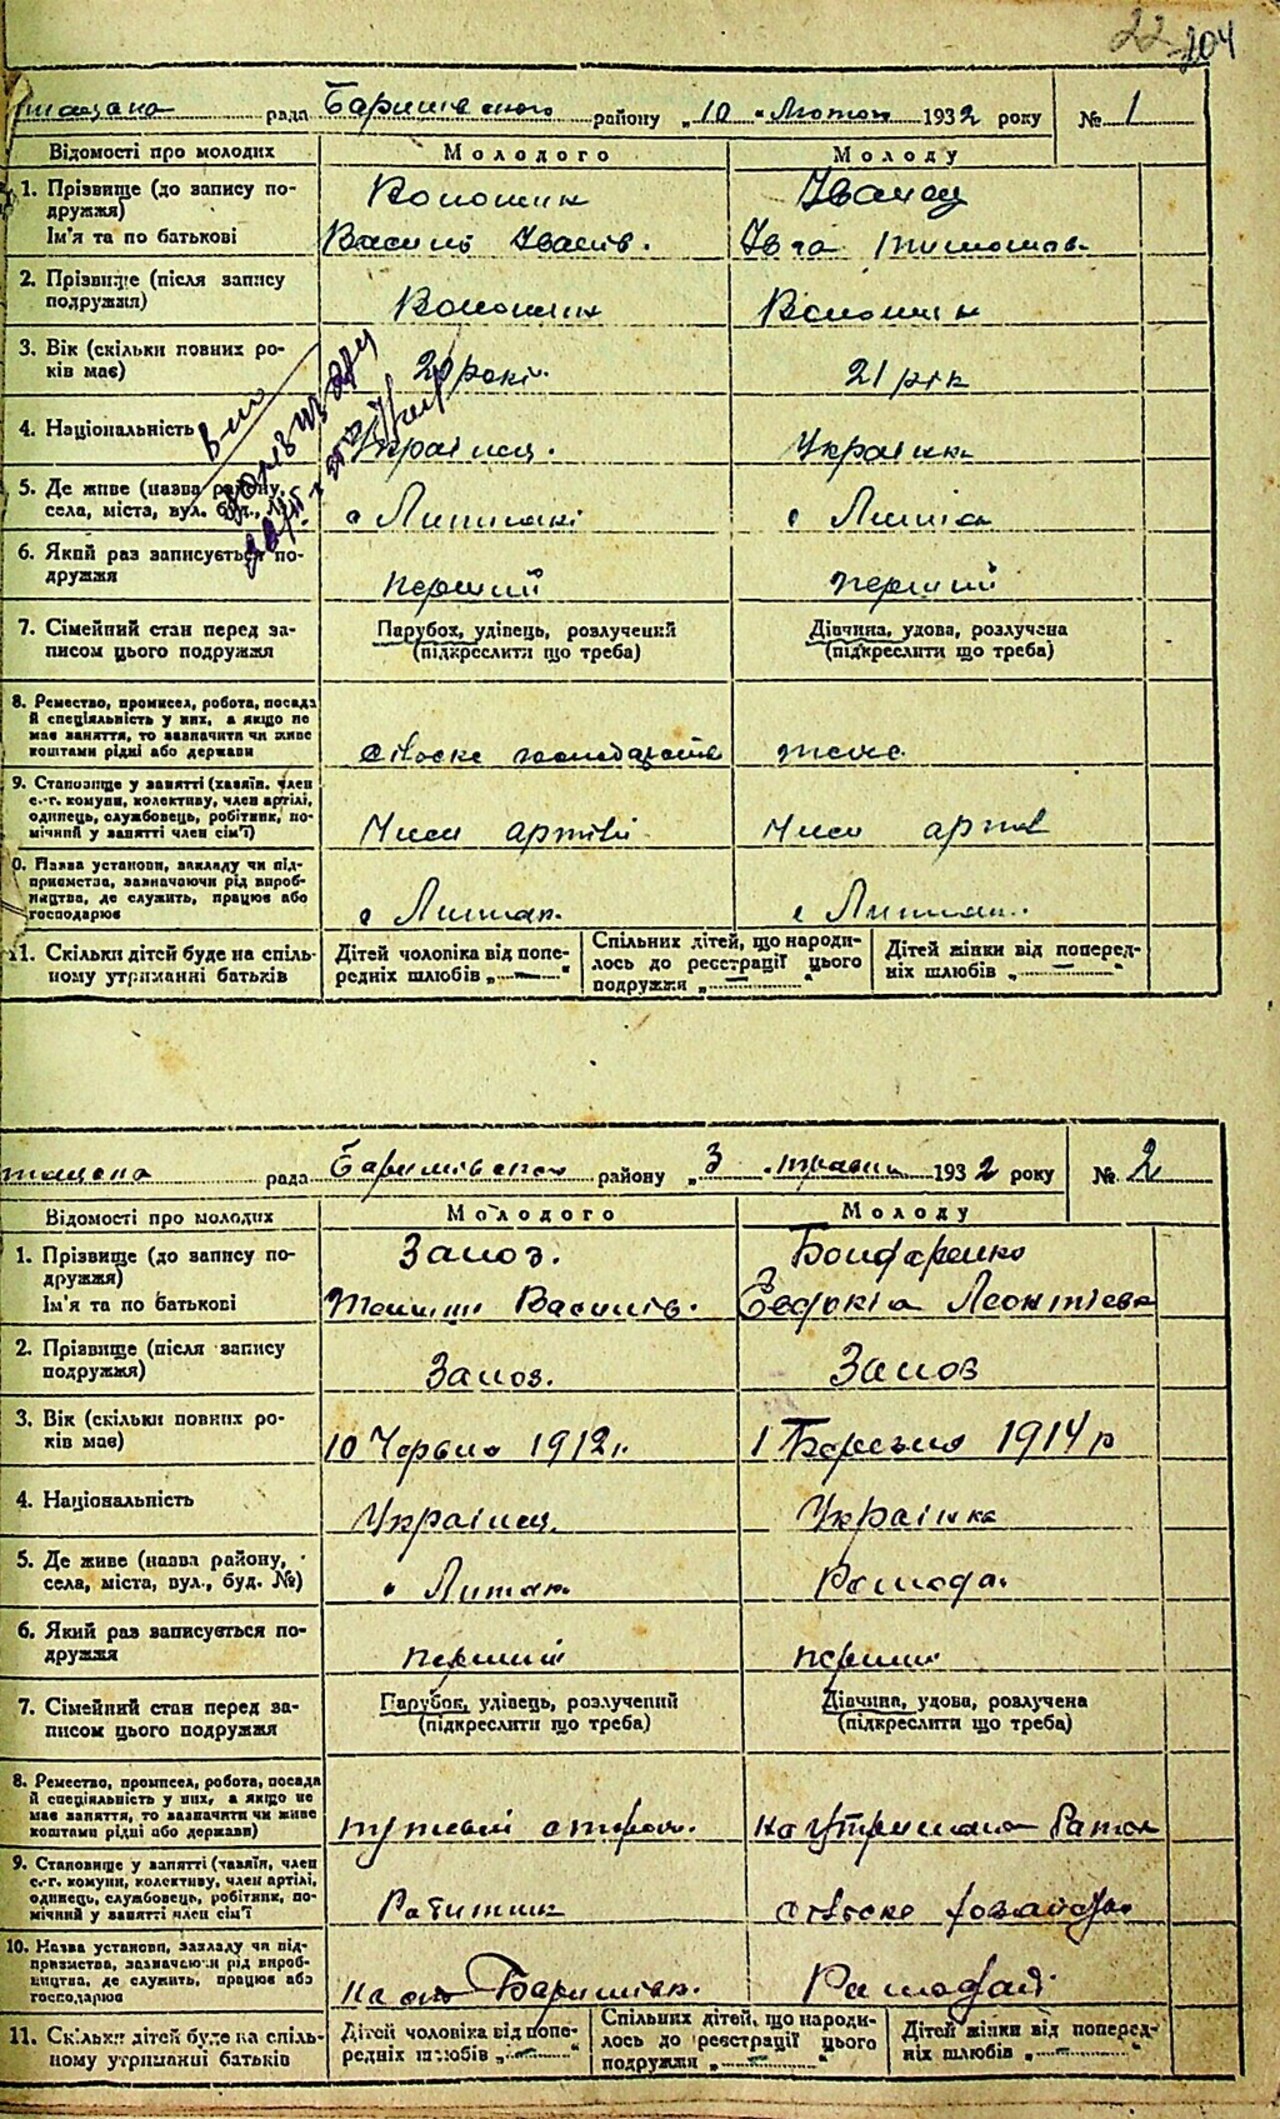 22 204
рада Баришівського району „10“ Лютого 1932 року № 1
Відомості про молодих Молодого Молоду
1. Прізвище (до запису по-
дружжя)
Волошин Іванец
Ім'я та по батькові Василь Іванів. Івга Тимошов.
2. Прізвище (після запису
подружжя)
Волошин Волошин
3. Вік (скільки повних ро-
ків має)
20 років. 21 рік
4. Національність Українец. Українка
5. Де живе (назва району,
села, міста, вул. буд., №)
с Лип с Лип
6. Який раз записується по-
дружжя
перший перший
7. Сімейний стан перед за-
писом цього подружжя
Парубок, удівець, розлучений
(підкреслити що треба)
Дівчина, удова, розлучена
(підкреслити що треба)
8. Ремество, промисел, робота, посада
й спеціяльність у них, а якщо не
має заняття, то зазначити чи живе
коштами рідні або держави
сільське господарств теж
9. Становище у занятті (хазяїн, член
с.-г. комуни, колективу, член артілі,
одинець, службовець, робітник, по-
мічний у занятті член сім'ї)
Член артілі Член артіл
0. Назва установи, закладу чи під-
приємства, зазначаючи рід вироб-
ництва, де служить, працює або
господарює
с Липнян. с Липнян.
11. Скільки дітей буде на спіль-
ному утриманні батьків
Дітей чоловіка від попе-
редніх шлюбів „—“
Спільних дітей, що народи-
лось до реєстрації цього
подружжя „—“
Дітей жінки від поперед-
ніх шлюбів „—“
рада Баришівського району „3“ травня 1932 року № 2
Відомості про молодих Молодого Молоду
1. Прізвище (до запису по-
дружжя)
Залоз. Бондаренко
Ім'я та по батькові Василів. Евдокія Леонтієва
2. Прізвище (після запису
подружжя)
Залоз. Залоз
3. Вік (скільки повних ро-
ків має)
10 Червня 1912 р. 1 Березня 1914 р
4. Національність Українец. Українка
5. Де живе (назва району,
села, міста, вул., буд. №)
с
6. Який раз записується по-
дружжя
перший перший
7. Сімейний стан перед за-
писом цього подружжя
Парубок, удівець, розлучений
(підкреслити що треба)
Дівчина, удова, розлучена
(підкреслити що треба)
8. Ремество, промисел, робота, посада
й спеціяльність у них, а якщо не
має заняття, то зазначити чи живе
коштами рідні або держави)
на утримана батьк
9. Становище у занятті (хазяїн, член
с.-г. комуни, колективу, член артілі,
одинець, службовець, робітник, по-
мічний у занятті член сім'ї
Робітник сільске
10. Назва установи, закладу чи під-
приємства, зазначаючи рід вироб-
ництва, де служить, працює або
господарює
на ст Баришівк.
11. Скільки дітей буде на спіль-
ному утриманні батьків
Дітей чоловіка від попе-
редніх шлюбів „—“
Спільних дітей, що народи-
лось до реєстрації цього
подружжя „—“
Дітей жінки від поперед-
ніх шлюбів „—“